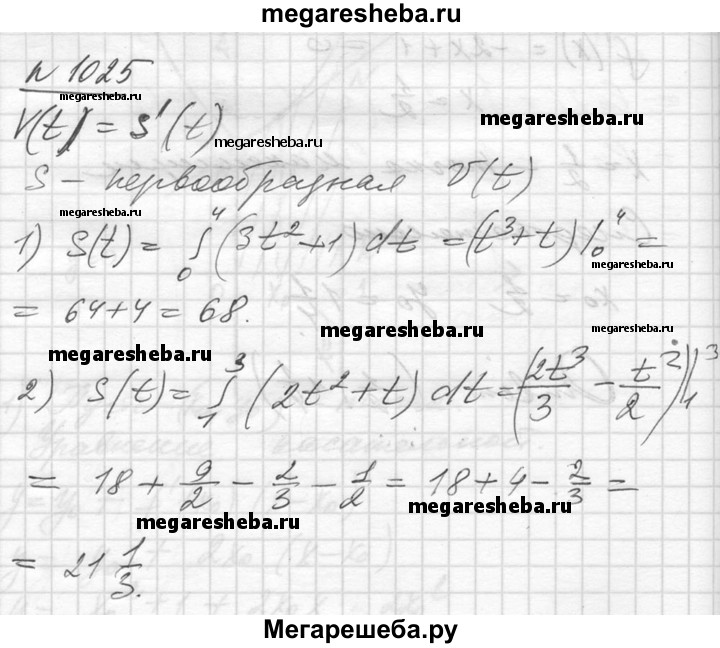 megaresheba.ru
n 1025
megaresheba.ru
V(t) = S'(t)
megaresheba.ru
megaresheba.ru
S – первообразная V(t)
megaresheba.ru
1) S(t) = ∫₀⁴ (3t² + 1) dt = (t³ + t) |₀⁴ =
megaresheba.ru
= 64 + 4 = 68.
megaresheba.ru
megaresheba.ru
megaresheba.ru
2) S(t) = ∫₁³ (2t² + t) dt = (2t³/3 – t²/2) |₁³
megaresheba.ru
= 18 + 9/2 – 2/3 – 1/2 = 18 + 4 – 2/3 =
megaresheba.ru
megaresheba.ru
= 21 1/3.
Мегарешеба.ру